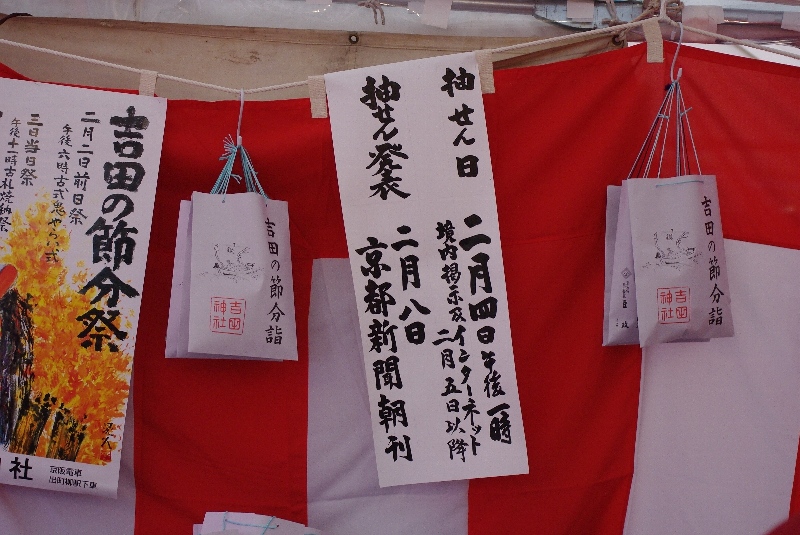 吉田の節分祭
二月二日前日祭
午後六時古式鬼やらい式
三日当日祭
午後十一時古札焼納祭
社
京阪電車
出町柳駅下車
吉田の節分詣
吉田
神社
抽せん日
二月四日午後一時
境内掲示及インターネット
二月五日以降
抽せん発表
二月八日
京都新聞朝刊
吉田の節分詣
吉田
神社